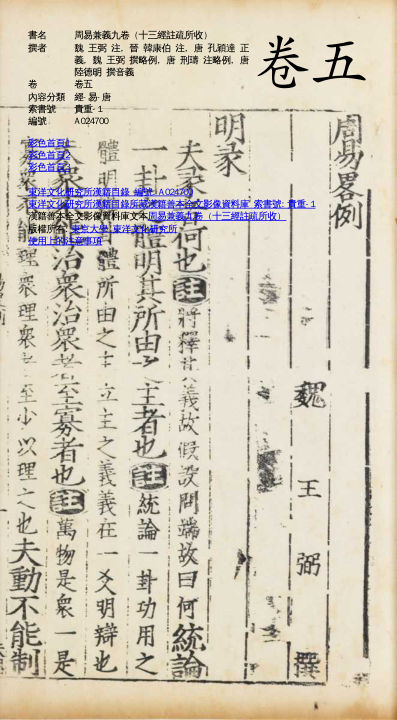 書名 周易兼義九卷（十三經註疏所收）
撰者 魏 王弼 注，晉 韓康伯 注，唐 孔穎達 正
義，魏 王弼 撰略例，唐 刑璹 注略例，唐
陸德明 撰音義
卷 卷五
內容分類 經-易-唐
索書號 貴重-1
編號 A024700
卷五
彩色首頁1
彩色首頁2
彩色首頁3
東洋文化研究所漢籍目錄 編號: A024700
東洋文化研究所漢籍目錄所藏漢籍善本全文影像資料庫 索書號: 貴重-1
漢籍善本全文影像資料庫文本 周易兼義九卷（十三經註疏所收）
版權所有: 東京大學 東洋文化研究所
使用上的注意事項
周易畧例
魏 王 弼 撰
明彖
夫彖者何也註將釋其義故假設問端故曰何統論
一卦之體明其所由之主者也註統論一卦功用之
體明 體所由之主立主之義義在一爻明辯也
夫衆不能治衆治衆者至寡者也註萬物是衆一是
寡衆不能理衆理衆 至少以理之也夫動不能制